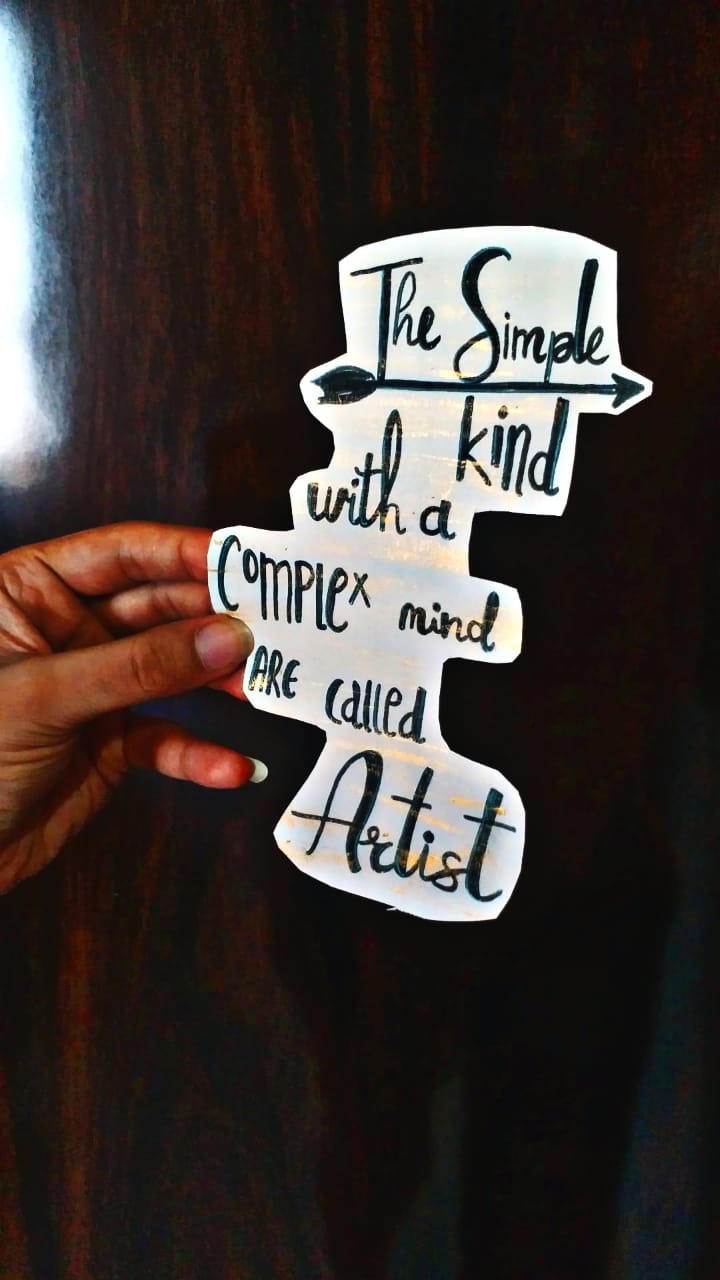 The Simple
kind
with a
COMPLEx mind
ARE called
Artist